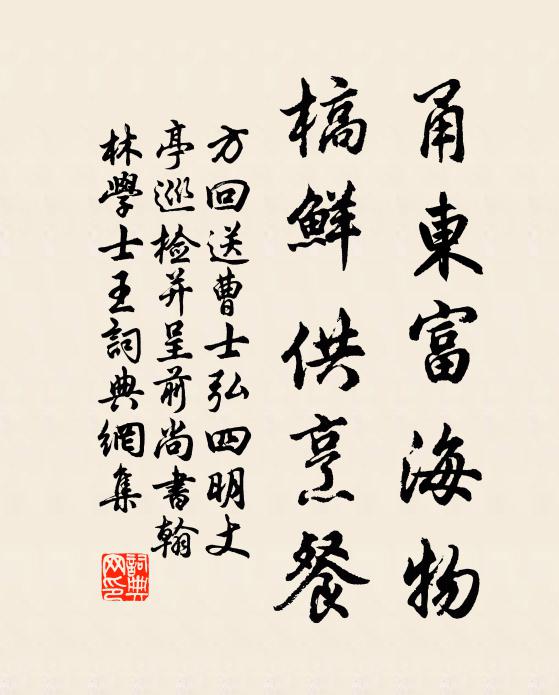 甬東富海物
槁鮮供烹餐
方回送曹士弘四明丈
亭巡檢并呈前尚書翰
林學士王詞典網集
詞典
网印